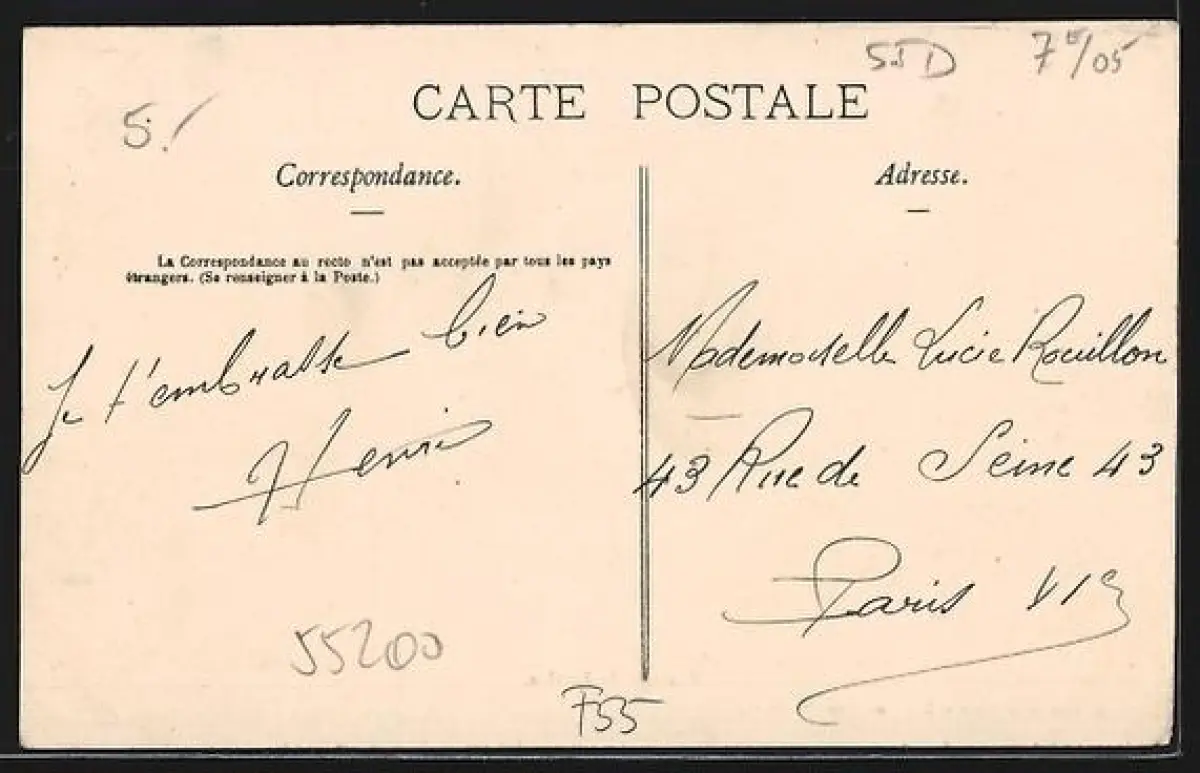 5.5D 7E/05
CARTE POSTALE
5./
Correspondance.
Adresse.
La Correspondance au recto n'est pas acceptée par tous les pays
étrangers. (Se renseigner à la Poste.)
Je t'embrasse bien
Henri
Mademoiselle Lucie Rouillon
43 Rue de Seine 43
Paris VIe
55200
F55